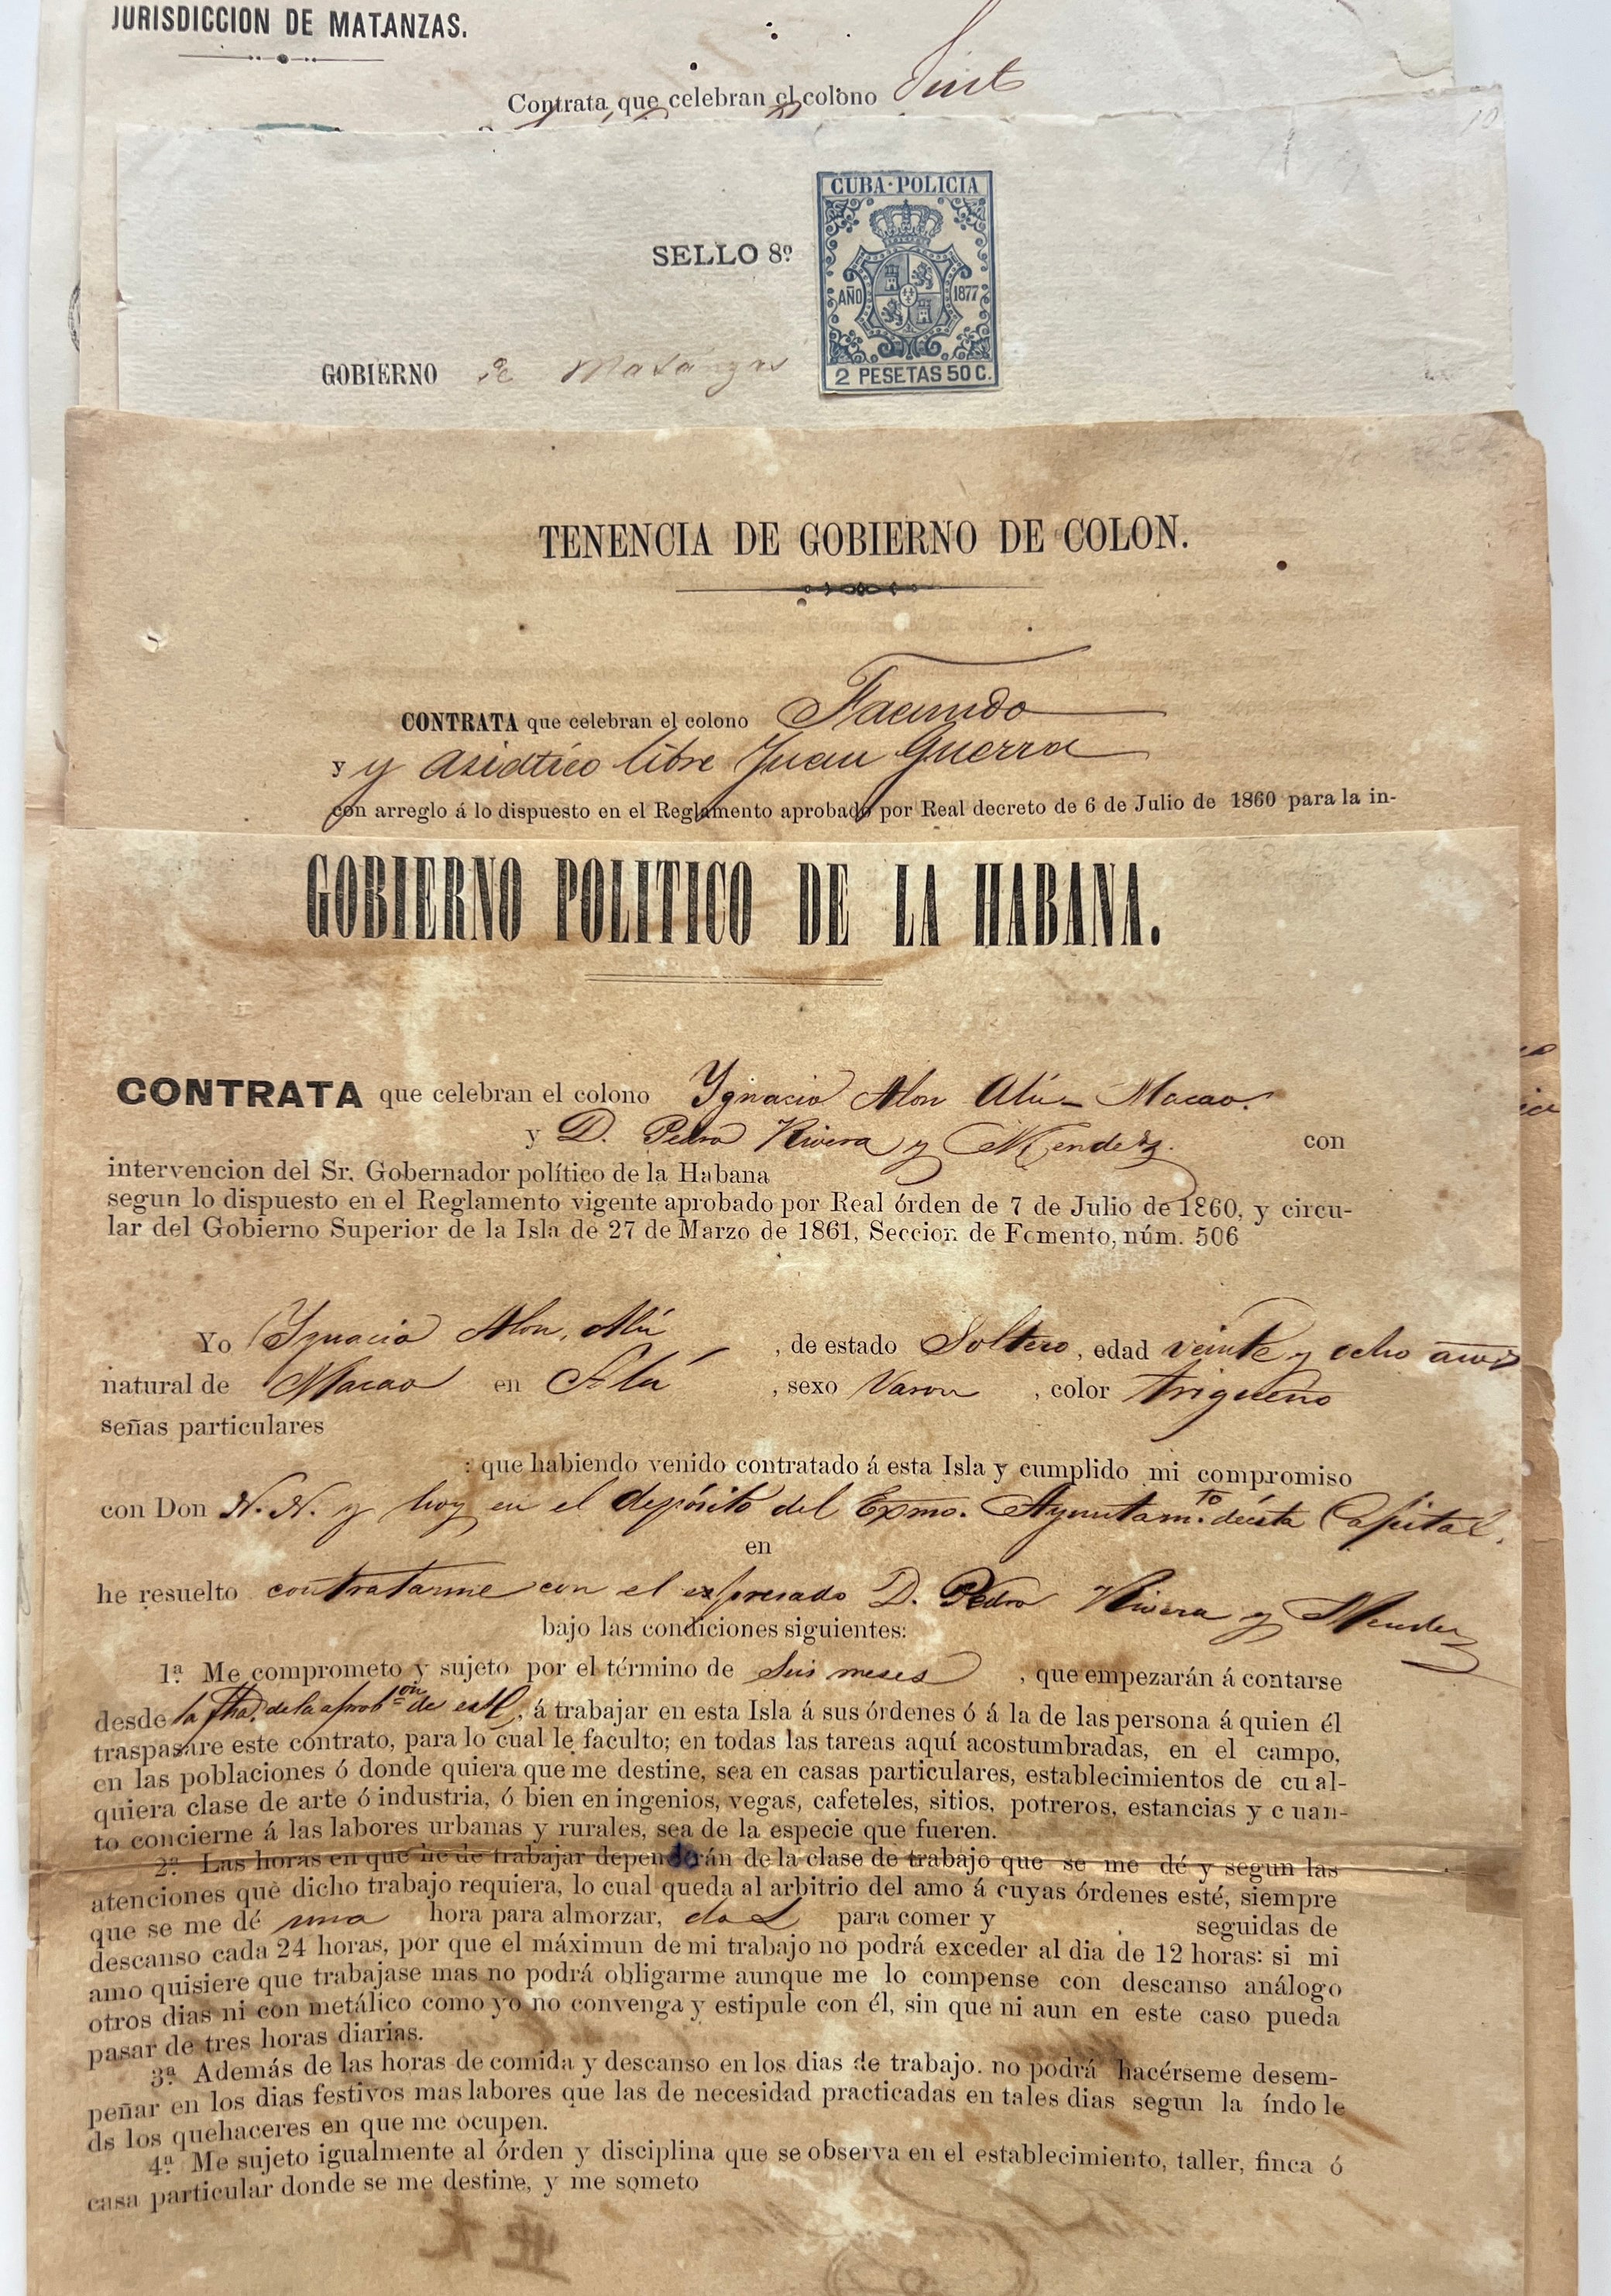 JURISDICCION DE MATANZAS.
Contrata que celebran el colono
CUBA-POLICIA
SELLO 8º
AÑO 1877
GOBIERNO de Matanzas
2 PESETAS 50 C.
TENENCIA DE GOBIERNO DE COLON.
CONTRATA que celebran el colono Facundo
y y asiatico libre Juan Guerra
con arreglo á lo dispuesto en el Reglamento aprobado por Real decreto de 6 de Julio de 1860 para la in-
GOBIERNO POLITICO DE LA HABANA.
CONTRATA que celebran el colono Ygnacio Alon Alú - Macao.
y D. Pedro Rivera y Mendez. con
intervencion del Sr. Gobernador político de la Habana
segun lo dispuesto en el Reglamento vigente aprobado por Real órden de 7 de Julio de 1860, y circu-
lar del Gobierno Superior de la Isla de 27 de Marzo de 1861, Seccion de Fomento, núm. 506
Yo Ygnacio Alon, Alú , de estado Soltero, edad veinte y ocho años
natural de Macao en Alú , sexo Varon , color trigueño
señas particulares
: que habiendo venido contratado á esta Isla y cumplido mi compromiso
con Don N. N. y hoy en el depósito del Exmo. Ayuntam.to de ésta Capital.
en
he resuelto contratarme con el expresado D. Pedro Rivera y Mendez
bajo las condiciones siguientes:
1ª Me comprometo y sujeto por el término de Seis meses , que empezarán á contarse
desde la fha. de la aprob.on de esta, á trabajar en esta Isla á sus órdenes ó á la de las persona á quien él
traspasare este contrato, para lo cual le faculto; en todas las tareas aquí acostumbradas, en el campo,
en las poblaciones ó donde quiera que me destine, sea en casas particulares, establecimientos de cual-
quiera clase de arte ó industria, ó bien en ingenios, vegas, cafeteles, sitios, potreros, estancias y cuan-
to concierne á las labores urbanas y rurales, sea de la especie que fueren.
2ª Las horas en que he de trabajar dependerán de la clase de trabajo que se me dé y segun las
atenciones que dicho trabajo requiera, lo cual queda al arbitrio del amo á cuyas órdenes esté, siempre
que se me dé una hora para almorzar, dos para comer y seguidas de
descanso cada 24 horas, por que el máximun de mi trabajo no podrá exceder al dia de 12 horas: si mi
amo quisiere que trabajase mas no podrá obligarme aunque me lo compense con descanso análogo
otros dias ni con metálico como yo no convenga y estipule con él, sin que ni aun en este caso pueda
pasar de tres horas diarias.
3ª Además de las horas de comida y descanso en los dias de trabajo. no podrá hacérseme desem-
peñar en los dias festivos mas labores que las de necesidad practicadas en tales dias segun la índole
ds los quehaceres en que me ocupen.
4ª Me sujeto igualmente al órden y disciplina que se observa en el establecimiento, taller, finca ó
casa particular donde se me destine, y me someto